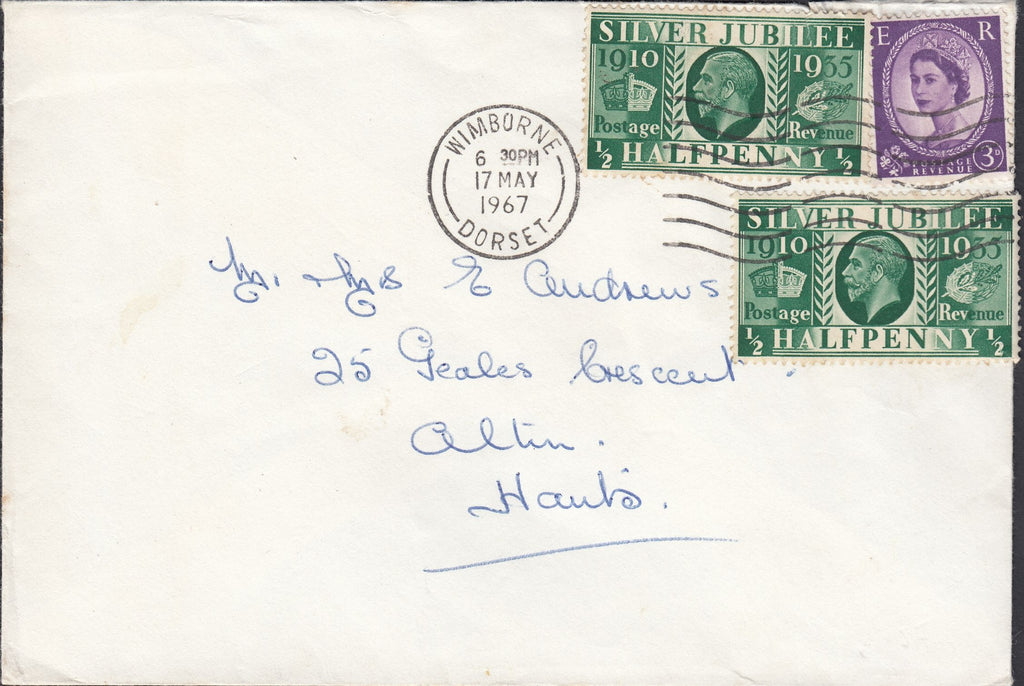 SILVER JUBILEE
1910 1935
Postage Revenue
½ HALFPENNY ½
E R
REVENUE 3D
WIMBORNE
6 30PM
17 MAY
1967
DORSET
SILVER JUBILEE
1910 1935
Postage Revenue
½ HALFPENNY ½
Mr. Mrs E Andrews
25 Geales Crescent
Altin.
Hants.